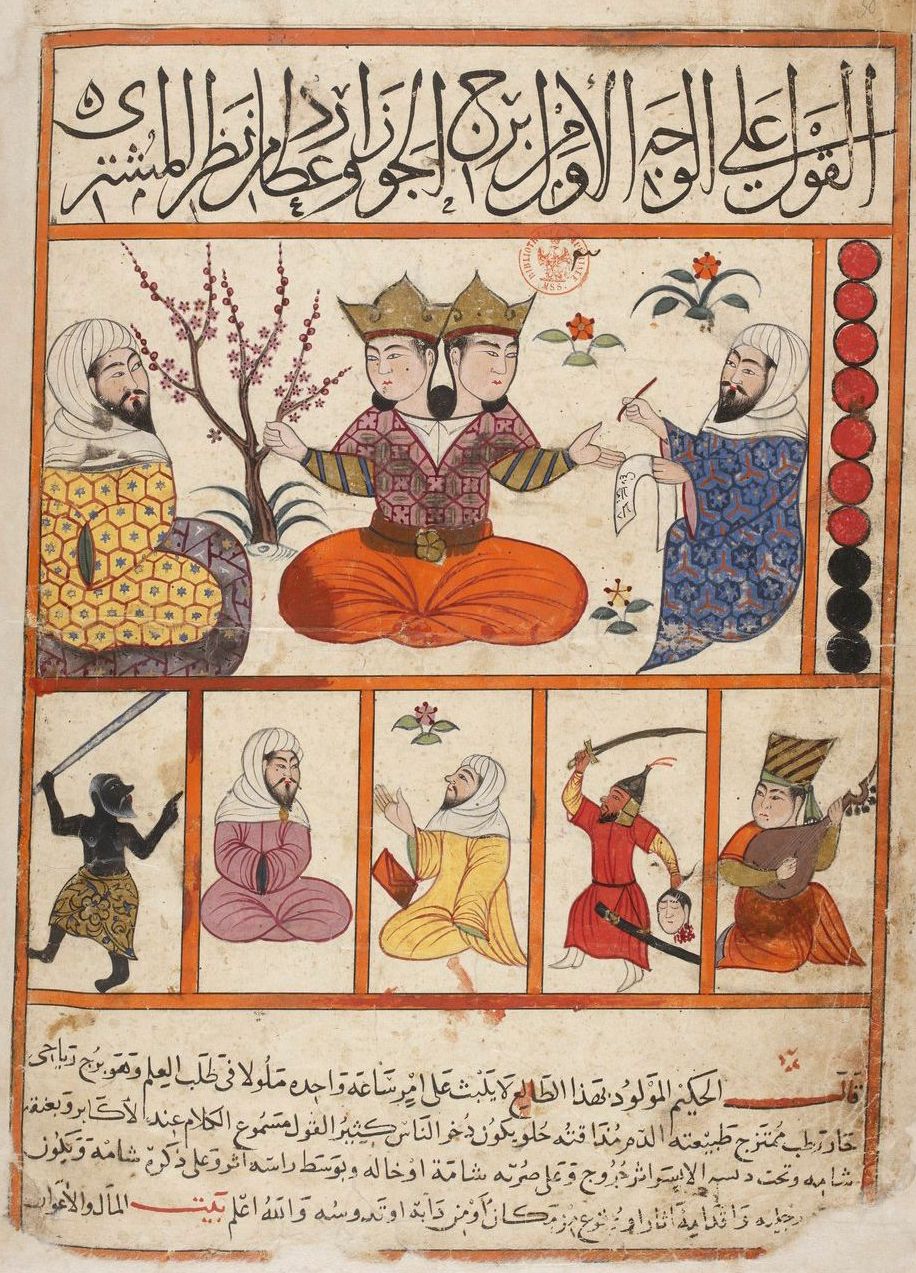 القول على الوجه الأول من برج الجوزا وعطارد نظر المشترى
BIBLIOTHE IMPERIALE MSS.
قال الحكيم المولود بهذا الطالع لا يلبث على امر ساعة واحده ملولا فى طلب العلم وهو برج رياحى
حار رطب ممتزج طبيعته الدم مذاقته حلو يكون دخو الناس كثير القول مسموع الكلام عند الاكابر وبعنقه
شامه وتحت الايسر اثر خروج وعلى صرته شامة او خاله وبوسط راسه اثر وعلى ذكره شامه ويكون
اثار او يقع من مكان أو من دابة او تدوسه والله اعلم بيت المال والأعوان